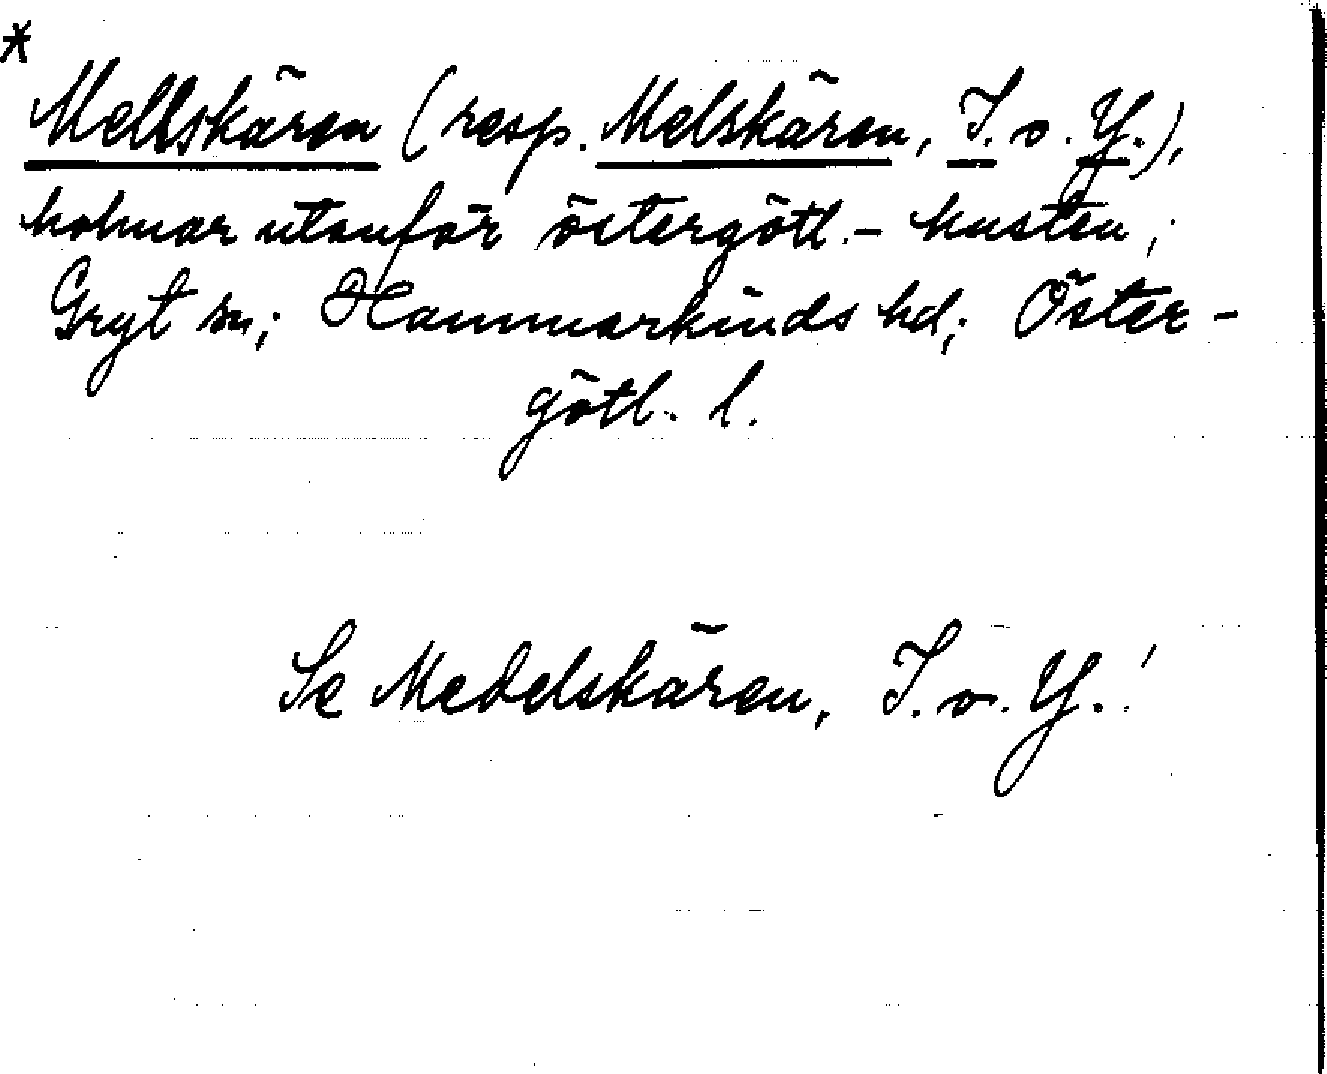 *
Mellskären (resp. Melskären, I. o. Y.),
holmar utanför östergötl.- kusten,
Gryt sn; Hammarkinds hd; Öster-
götl. l.
Se Medelskären, I. o. Y.!